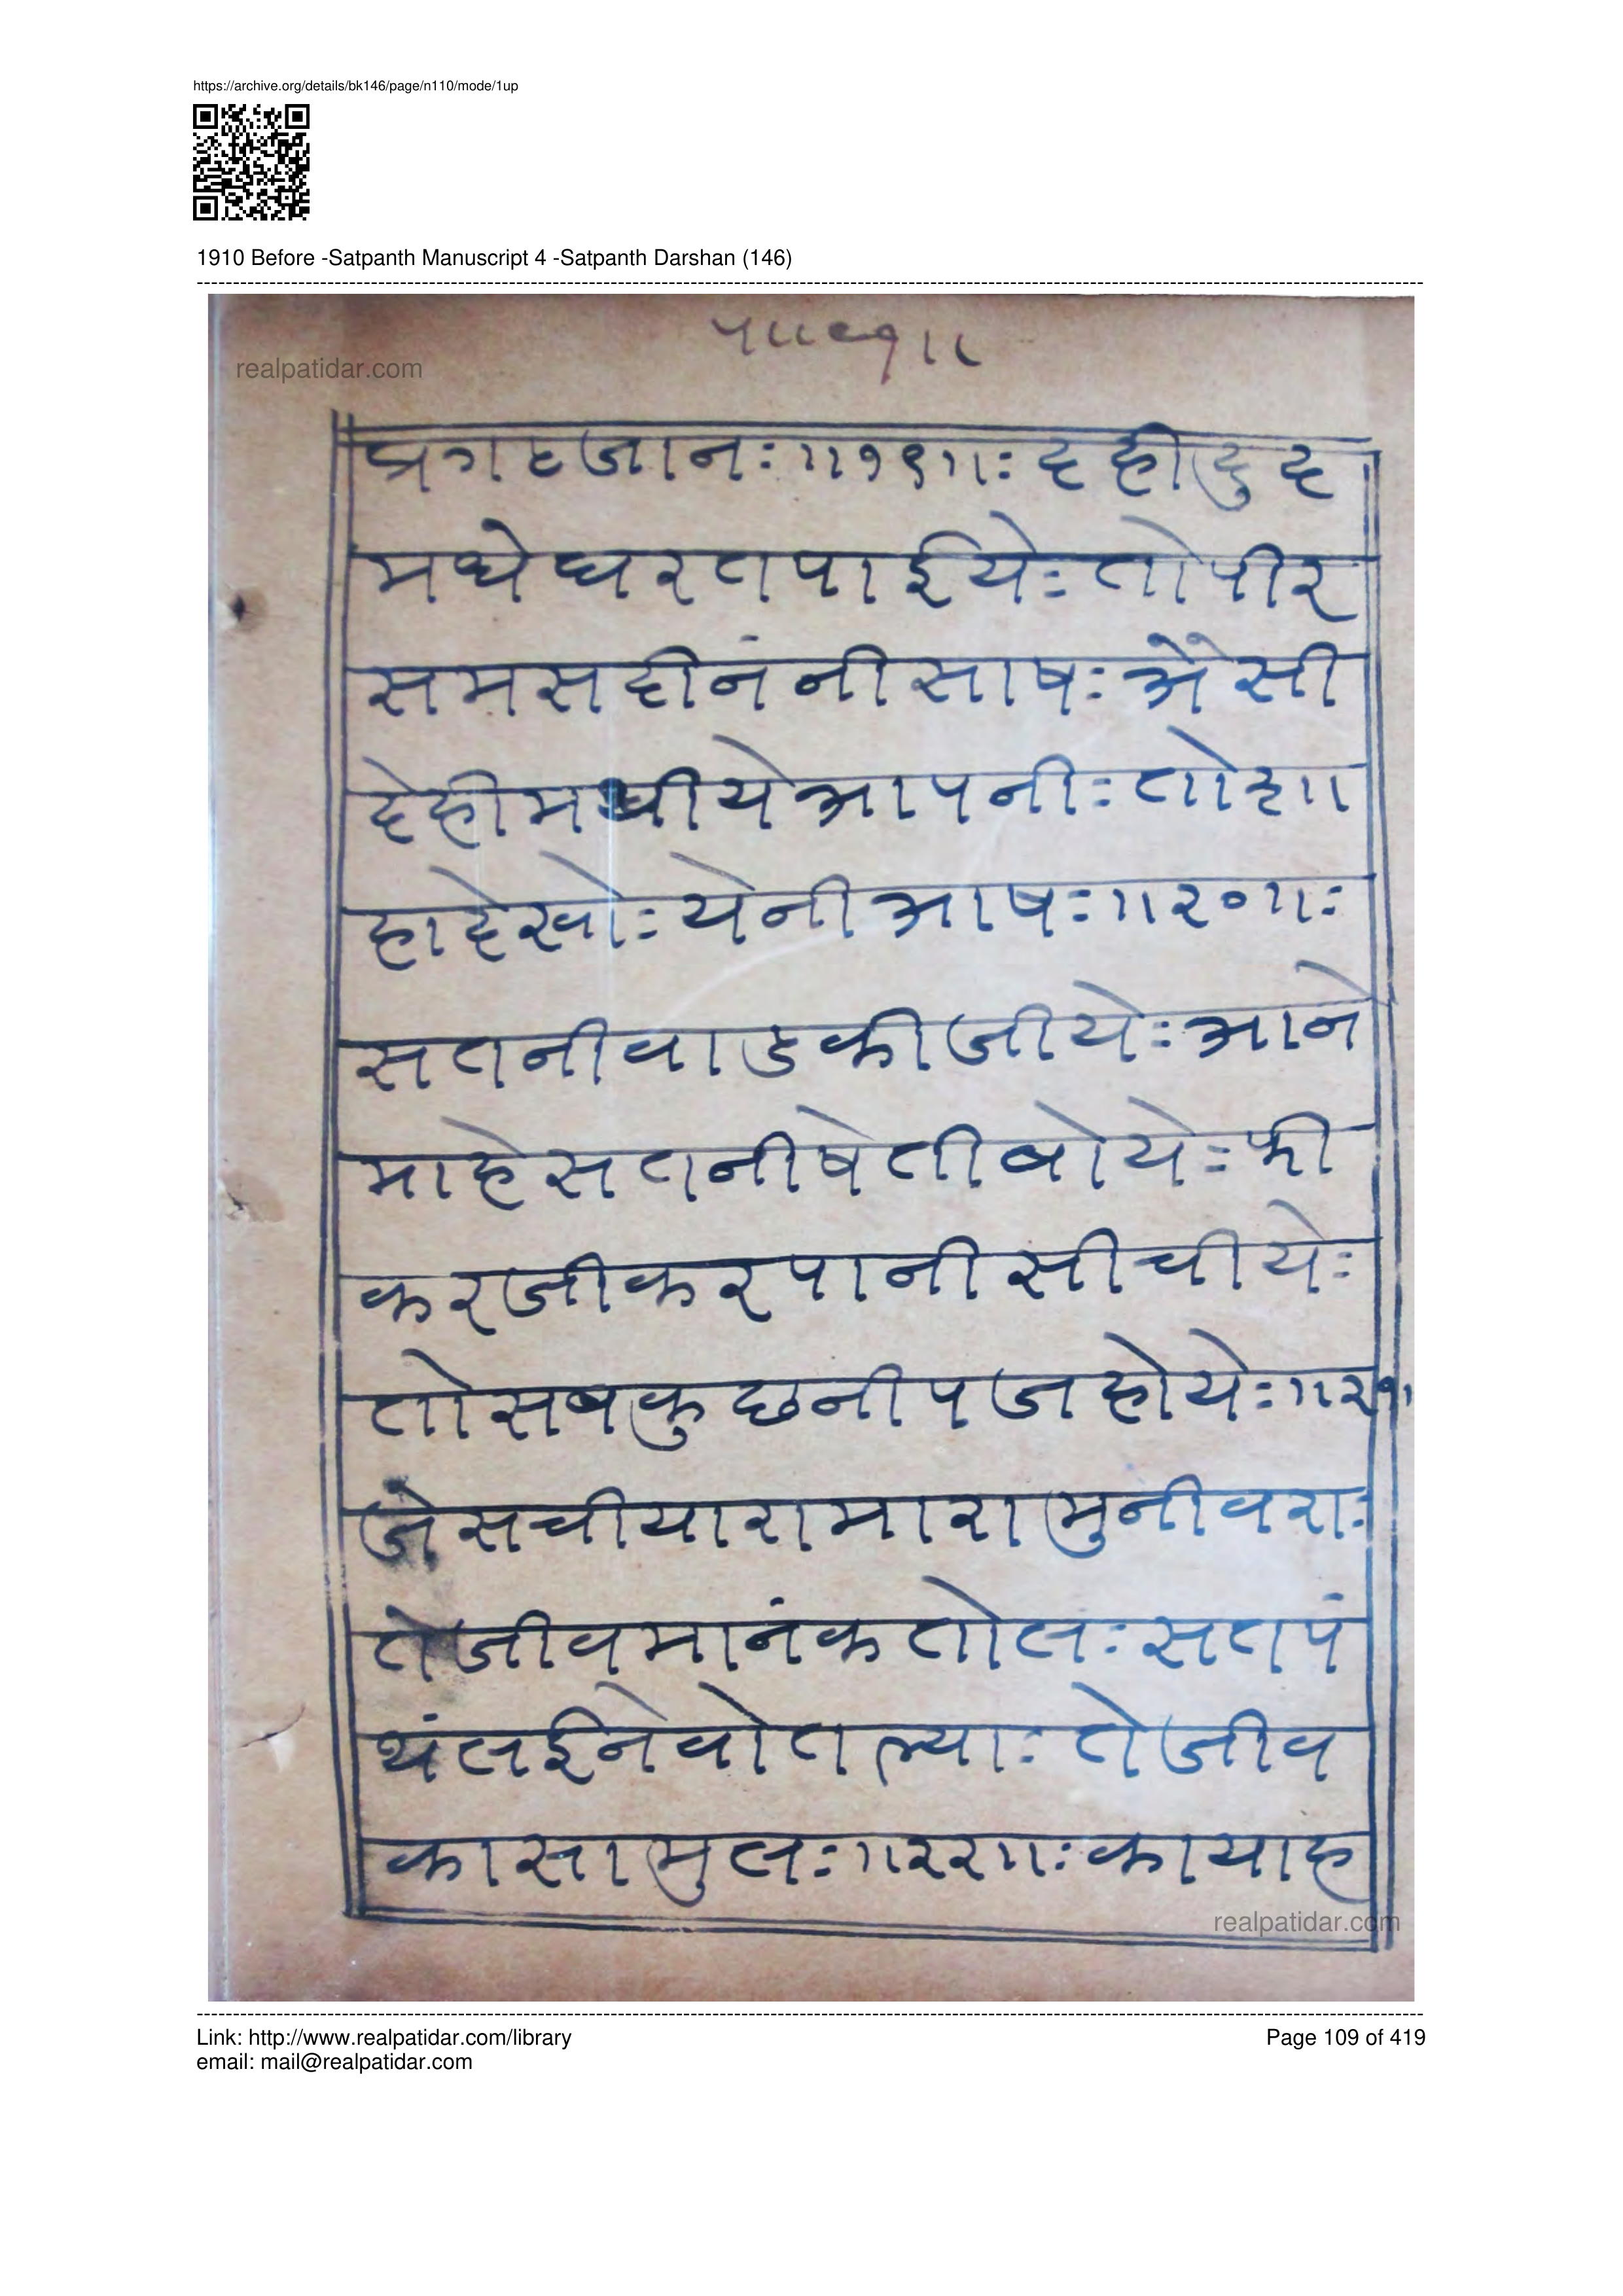 https://archive.org/details/bk146/page/n110/mode/1up
1910 Before -Satpanth Manuscript 4 -Satpanth Darshan (146)
realpatidar.com
प्रगटजानः॥१९॥ः दहीदुद
मधेघरतपाईयेः तोपीर
समसदीनंनीसाषः अेसी
देहीमथीयेआपनीः तो
हादेखोः येनीआषः॥२०॥ः
सतनीवाडकीजीयेः आने
माहेसतनीषेतीबोयेः फी
करजीकरपानीसीचीयेः
तोसबकुछनीपजहोयेः॥२१
जेसचीयारामारामुनीवराः
तेजीवमानंकतोलः सतपं
थंलईनेवोतल्याः तेजीव
कासामुलः॥२२॥ः कायाह
realpatidar.com
Link: http://www.realpatidar.com/library
Page 109 of 419
email: mail@realpatidar.com